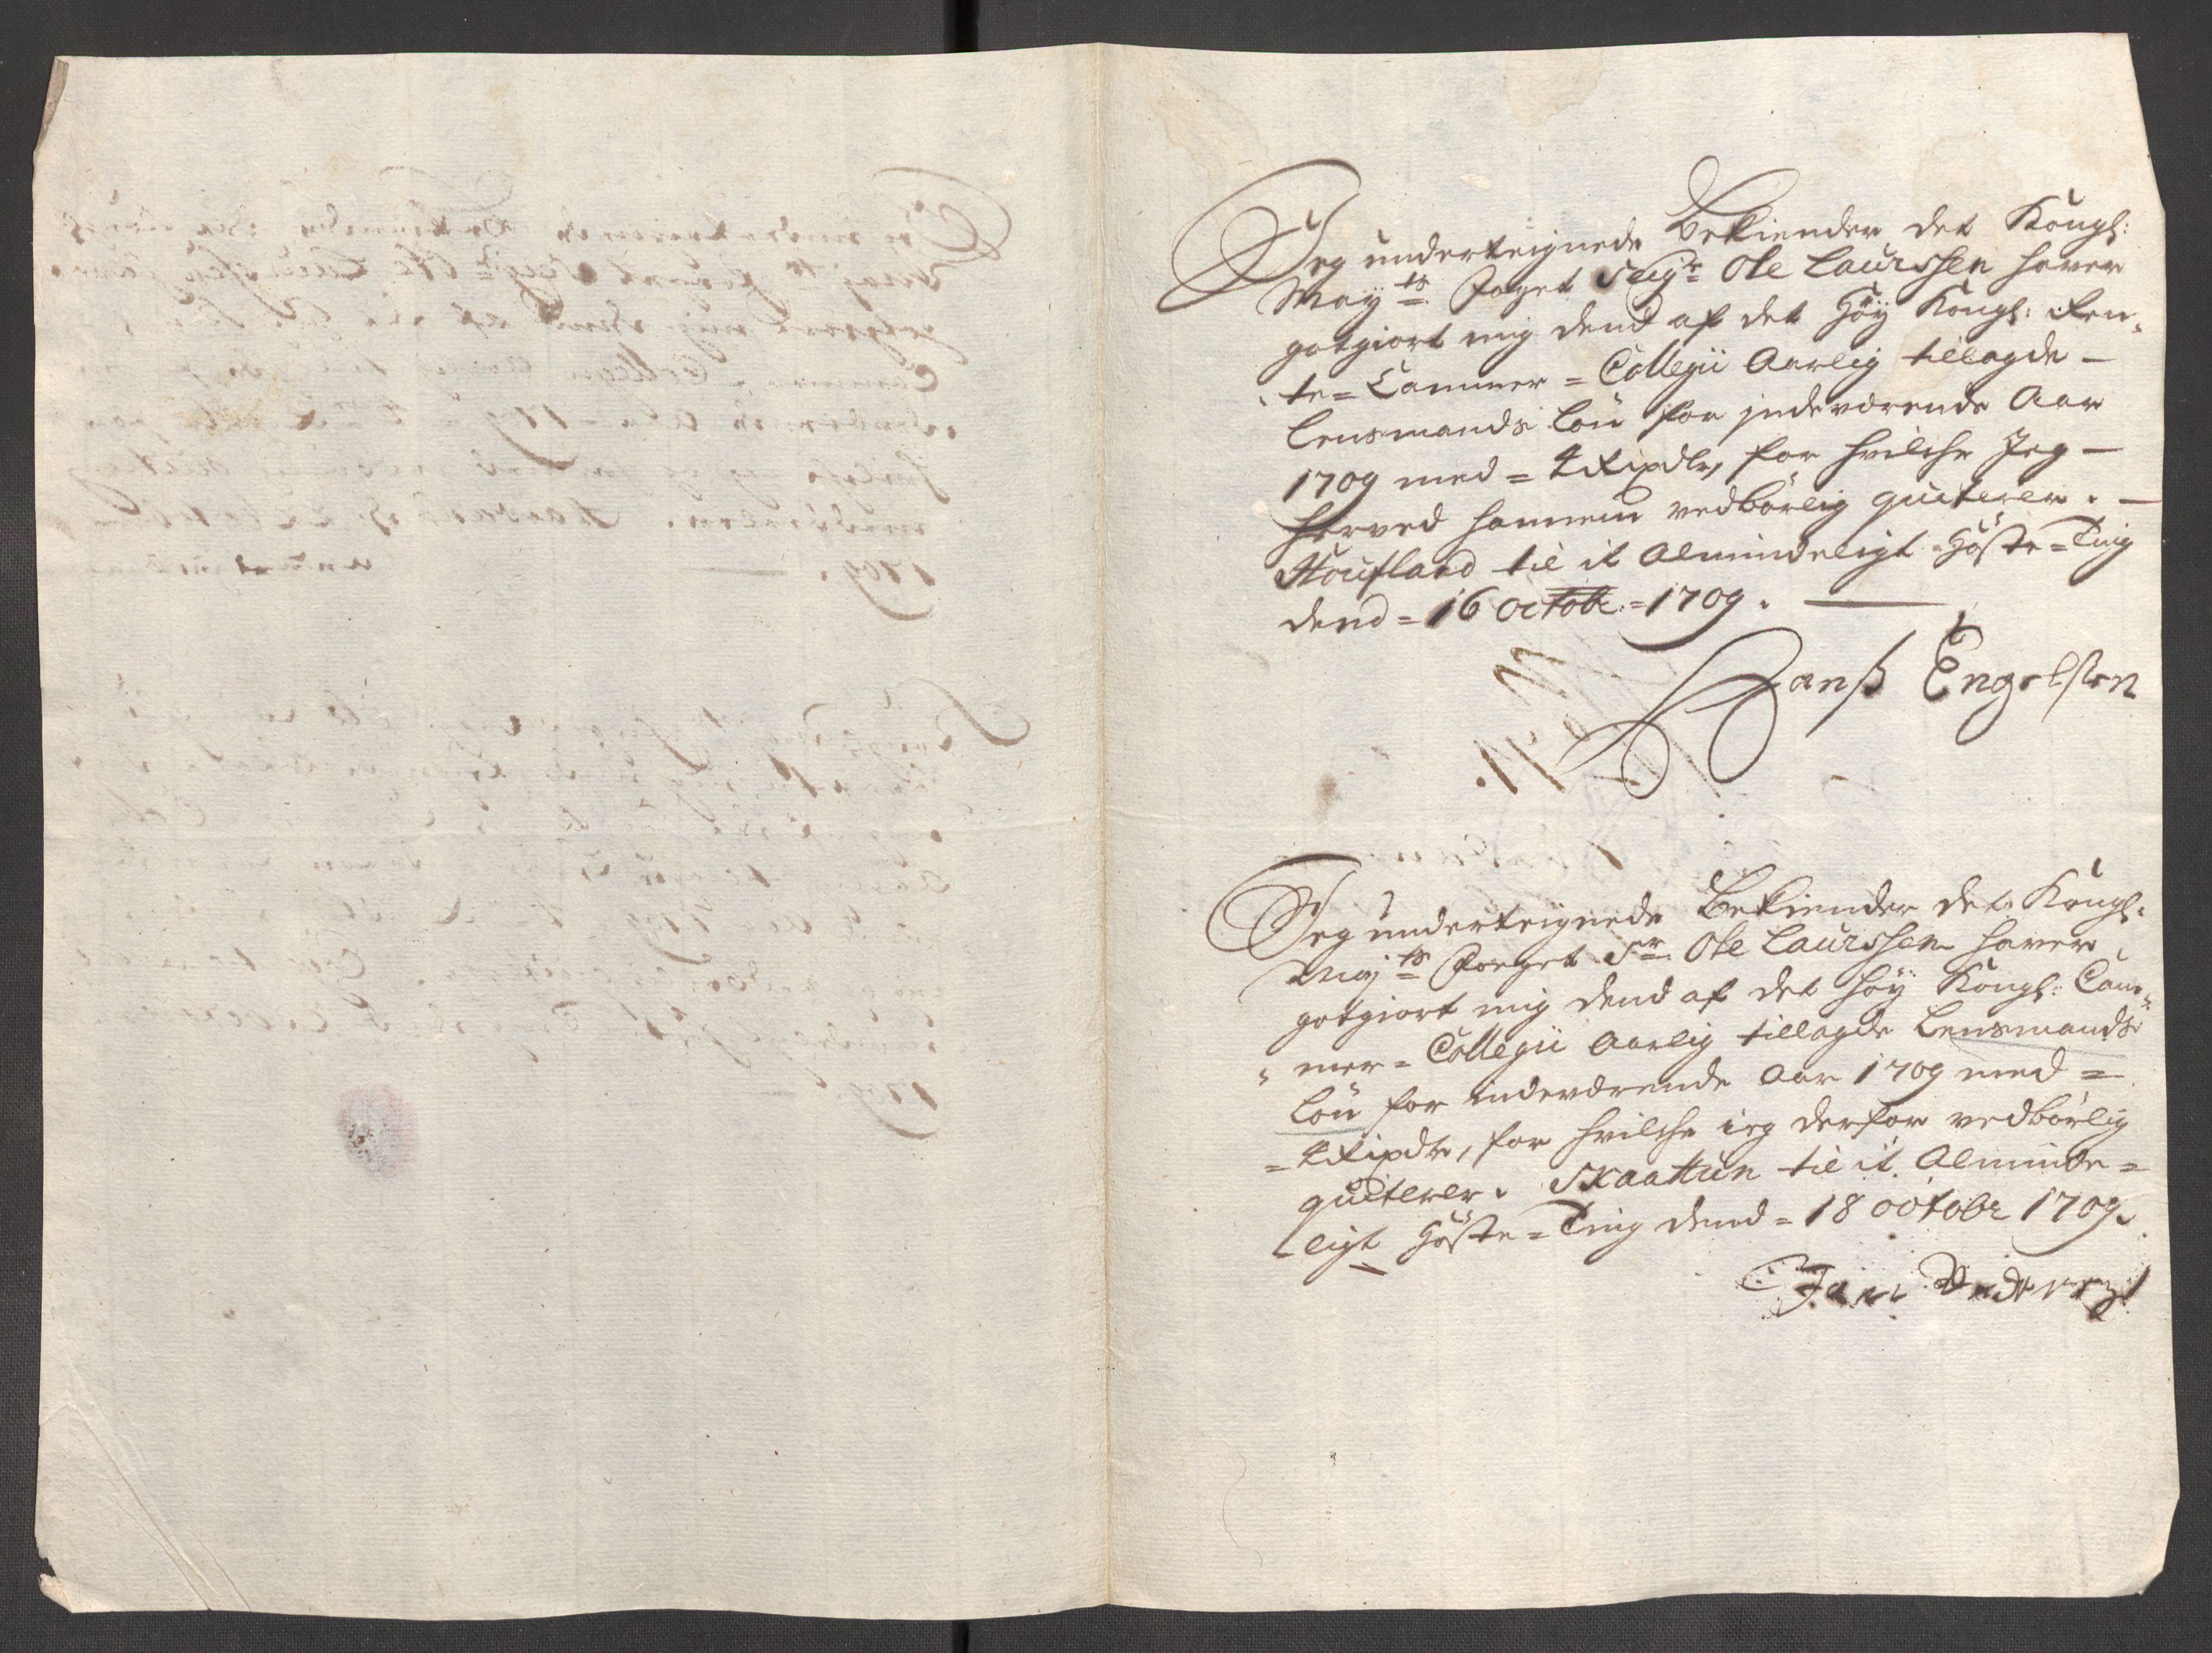 Jeg underteignede Bekiender det Kongl:
May:ts Foget Seigr Ole Laurssen hafver
gotgiort mig dend af det Höy Kongl: Ren-
te-Cammer-Collegii Aarlig tillagde
Lensmands Lön for indeværende Aar
1709 med = 4 Rixdlr, for hvilche Jeg
herved hannem vedbörlig quiterer.
Houfland til it Almindeligt Höste-Ting
dend = 16 Octobr: = 1709.
Hanß Engelssen
No 11.
Jeg underteignede Bekiender det Kongl:
May:ts Foeget Sr Ole Laurssen hafver
gotgiort mig dend af det höy Kongl: Cam-
mer-Collegii Aarlig tillagde Lensmands
Lön for indeværende Aar 1709 med =
= 4 Rixdlr, for hvilche ieg derfor vedbörlig
quiterer. Skaattun til it Alminde=
ligt Höste-Ting dend = 18 octobr 1709.